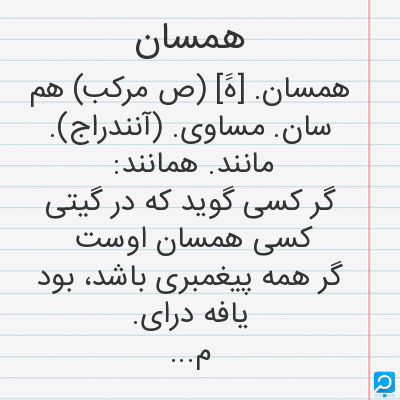 همسان
همسان. [هََ] (ص مرکب) هم
سان. مساوی. (آنندراج).
مانند. همانند:
گر کسی گوید که در گیتی
کسی همسان اوست
گر همه پیغمبری باشد، بود
یافه درای.
م...